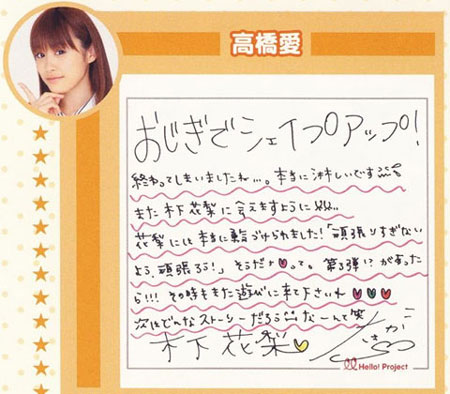 高橋愛
おじぎでシェイプアップ!
終わってしまいましたね…。本当に淋しいです
また木下花梨に会えますように…
花梨には本当に勇気づけられました!「頑張りすぎない
よう、頑張ろう!」そうだョ♥って。第3弾!?があった
ら!!! その時もまた遊びに来て下さいね♥♥♥
次はどんなストーリーだろう なーんて笑
木下花梨♥
Hello! Project